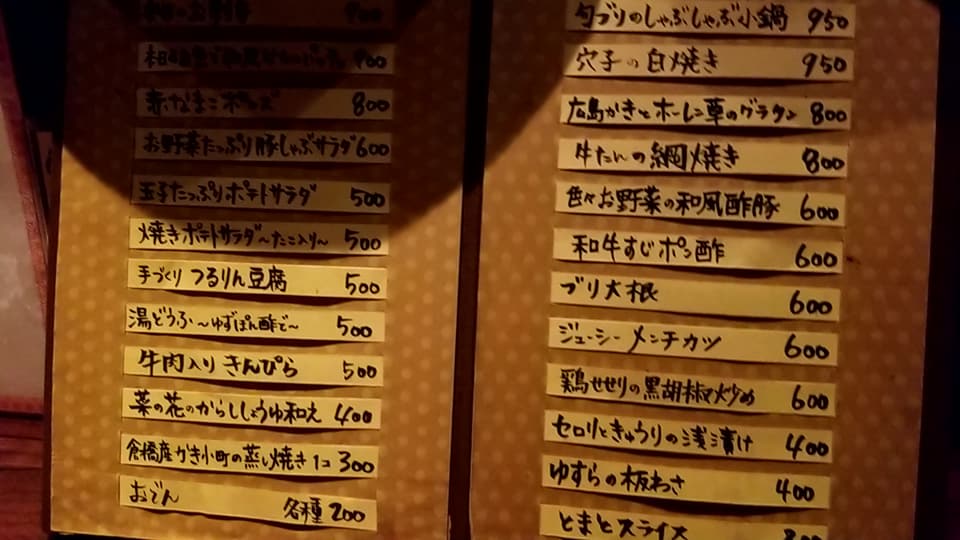 900
900
赤なまこポン酢 800
お野菜たっぷり豚しゃぶサラダ 600
玉子たっぷりポテトサラダ 500
焼きポテトサラダ〜たこ入り〜 500
手づくりつるりん豆腐 500
湯どうふ〜ゆずぽん酢で〜 500
牛肉入りきんぴら 500
菜の花のからししょうゆ和え 400
倉橋産かき小町の蒸し焼き 1コ 300
おでん 各種 200
旬ブリのしゃぶしゃぶ小鍋 950
穴子の白焼き 950
広島かきとホーレン草のグラタン 800
牛たんの網焼き 800
色々お野菜の和風酢豚 600
和牛すじポン酢 600
ブリ大根 600
ジューシーメンチカツ 600
鶏せせりの黒胡椒炒め 600
セロリときゅうりの浅漬け 400
ゆすらの板わさ 400
とまとスライス